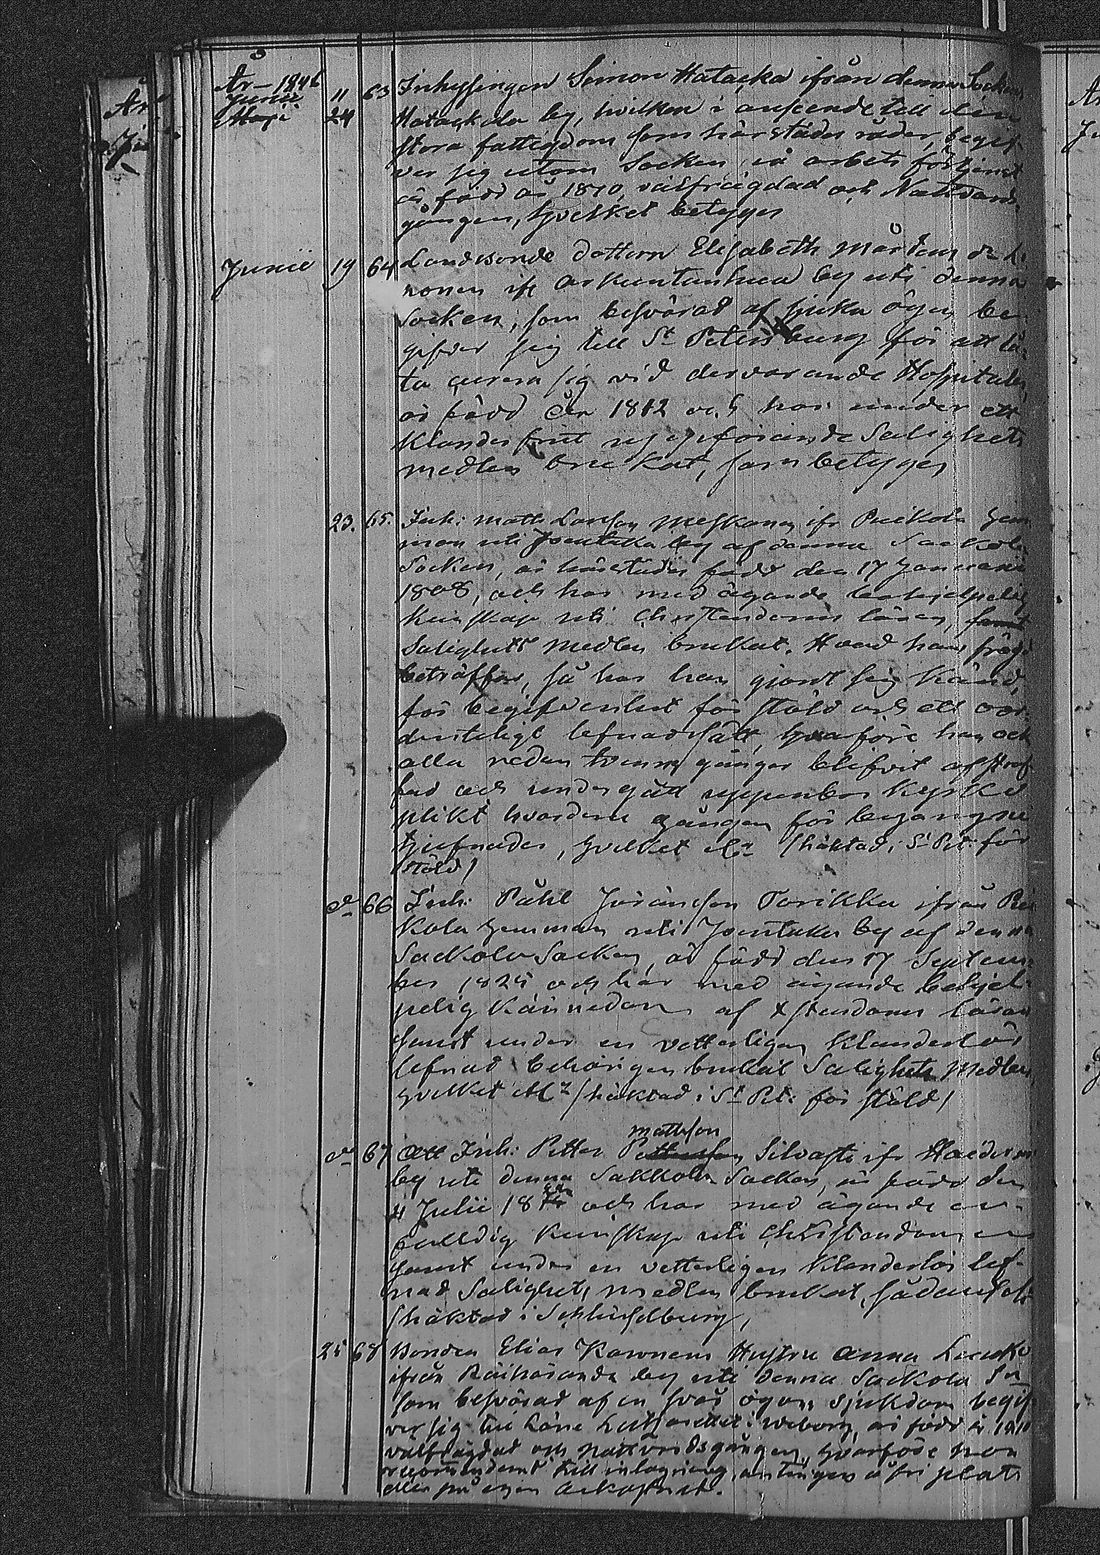 År 1846
Junii 11 63 Inhysingen Simon Hatacka ifrån denna Socken
Maji 24 Hatackala by, hvilken i anseende till den
stora fattigdom som härstädes råder, begif
ver sig utom Socken på arbets förtjenst
är född år 1810, välfrägdad och Nattvards
gången, hvilket betyges
Junii 19 64 Landbonde dottern Elisabeth Mårtens dr
nonen ifr by uti denna
Socken, som besvärad af sjuka ögon be
gifver sig till St Petersburg för att lå
ta curera sig vid dervarande Hospitaler
är född år 1812 och har under ett
Klanderfritt uppförande Salighets
medlen brukat, som betyges
23. 65. Inh: Matts Larsson Meskanen ifr Reckola hem
man uti Joentaka by af denna Sackola
Socken, är härstädes född den 17 Januarii
1808, och har med ägande behjelpelig
kunskap uti Christendoms läran, samt
Salighets medlen brukat. Hvad hans frägd
beträffar, så har han gjort sig känd,
för begifvenhet för stöld och ett oor
denteligt lefnadssätt, hvarföre han och
alla redan tvenne gånger blifvit afstraf
fad och undergått uppenbar Kyrko
plikt hvardera gången för begångne
tjufnader, hvilket etc (häktad i St Pet: för
stöld)
do 66 Inh: Påhl Jöransson Torikka ifrån Rec
kola hemman uti Joentaka by af denna
Sackola Socken, är född den 17 Septem
ber 1825 och har med ägande behjel
pelig kännedom af Xstendoms läran
samt under en vetterligen klanderlös
lefnad behörigen brukat Salighets Medlen
hvilket etc (häktad i St Pet: för stöld)
mattsson
do 67 Att Inh: Petter Silvasti ifr
by uti denna Sakkola Socken, är född den
4 Julii 18 och har med ägande en
faldig kunskap uti Christendomen
samt under en vetterligen klanderlös lef
nad Salighets medlen brukat, sådant
(häktad i Schlüsselburg)
25 68 Bonden Elias Karonens Hustru Anna
ifrån Räihäranda by uti denna Sackola Sn
som besvärad af en svår ögon sjukdom begif
ver sig till Läns Lazarettet i Wiborg, är född år 1810
välfrägdad och nattvardsgången, hvarföre hon
recommenderas till inlagning, antingen å fri plats
eller på egen bekostnad.